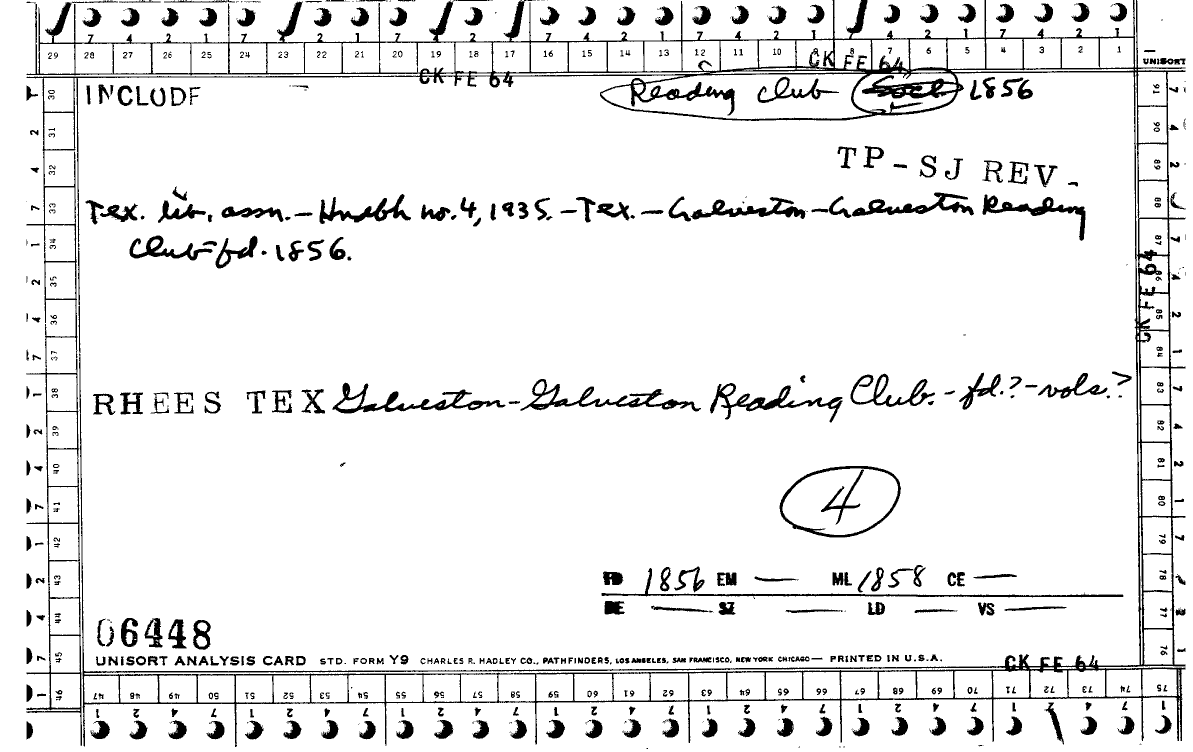 7 4 2 1 7 4 2 1 7 4 2 1 7 4 2 1 7 4 2 1 7 4 2 1 7 4 2 1
29 28 27 26 25 24 23 22 21 20 19 18 17 16 15 14 13 12 11 10 9 8 7 6 5 4 3 2 1 UNISORT
CK FE 64 CK FE 64
INCLUDE Reading Club Socl 1856
TP-SJ REV.
Tex. lib. assn. - Hndbk no. 4, 1935. - Tex. - Galveston - Galveston Reading
Club - fd. 1856.
CK FE 64
RHEES TEX Galveston - Galveston Reading Club. - fd.? - vols.?
4
FD 1856 EM — ML 1858 CE —
DE — SZ — LD — VS —
06448
UNISORT ANALYSIS CARD STD. FORM Y9 CHARLES R. HADLEY CO., PATHFINDERS, LOS ANGELES, SAN FRANCISCO, NEW YORK CHICAGO — PRINTED IN U.S.A.
CK FE 64
30 31 32 33 34 35 36 37 38 39 40 41 42 43 44 45 46
91 90 89 88 87 86 85 84 83 82 81 80 79 78 77 76
47 48 49 50 51 52 53 54 55 56 57 58 59 60 61 62 63 64 65 66 67 68 69 70 71 72 73 74 75
1 2 4 7 1 2 4 7 1 2 4 7 1 2 4 7 1 2 4 7 1 2 4 7 1 2 4 7 1